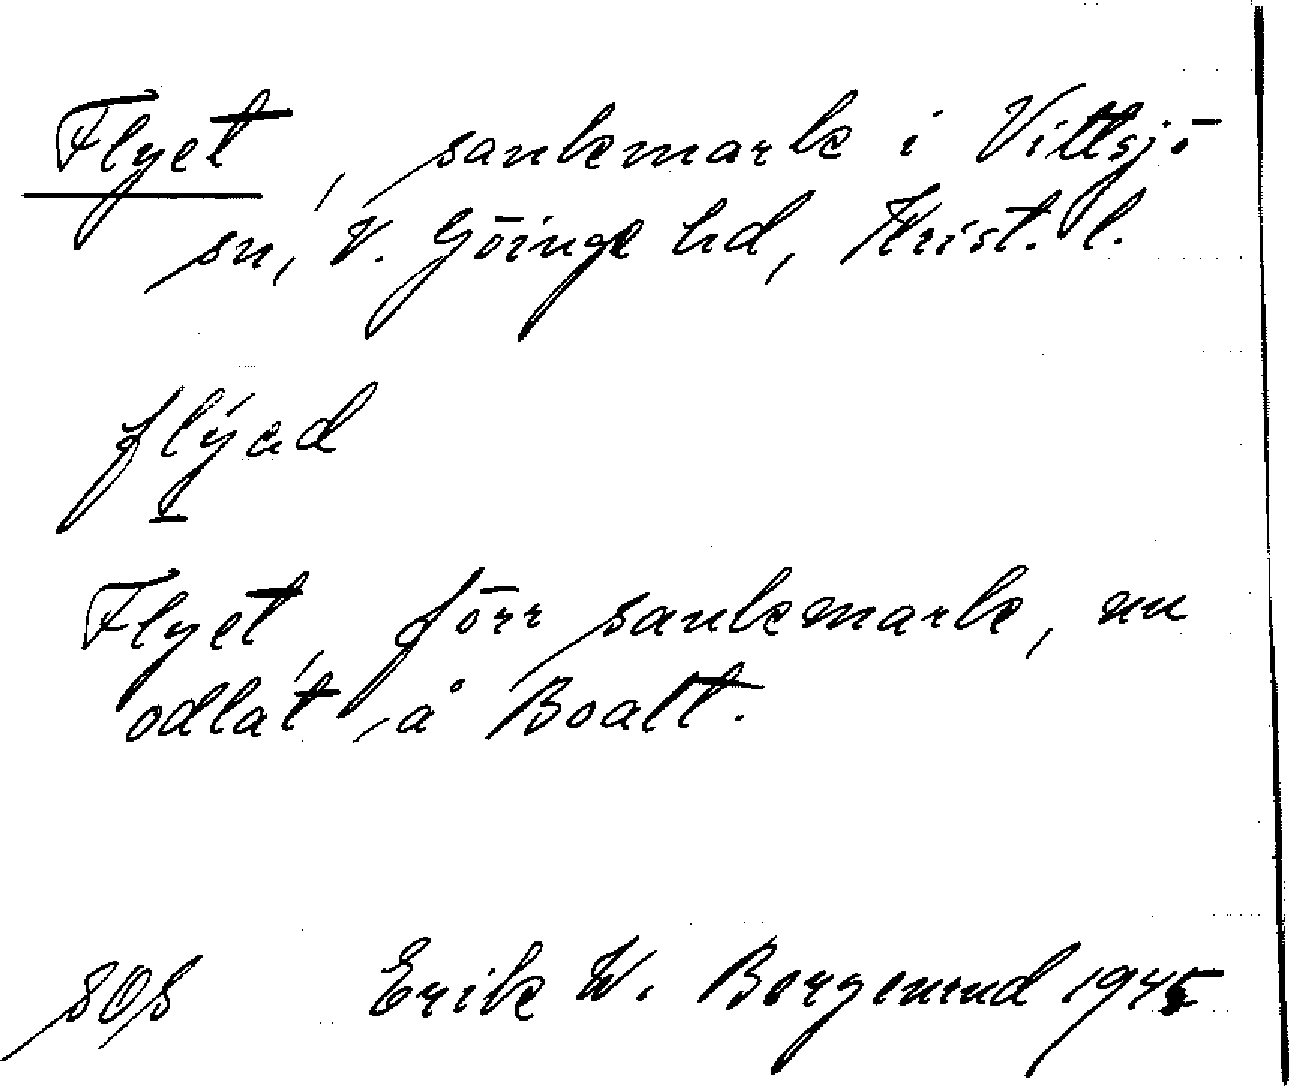 Flyet, sankmark i Vittsjö
sn, V. Göinge hd, Krist. l.
flýad
Flyet, förr sankmark, nu
odlat, å Boalt.
Erik W. Bergenund 1945